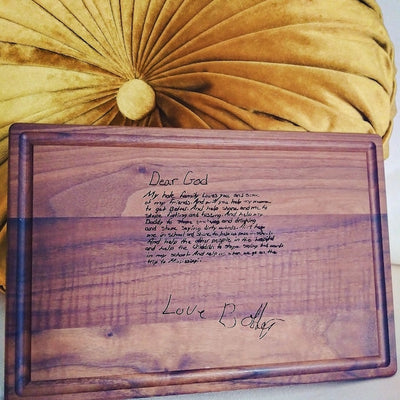 Dear God
My hole family loves you and som
of my friends. And will you help my momma
to get Better. And help shane and me to
stope fighting and fussing. And help my
Daddy to stope and drinking
and stope saying dirty words. And help
me in school and
And help the other people in the hospital
and help the children to stope saying bad words
in my school. And help us when we go on the
trip to Mississippi.
Love B